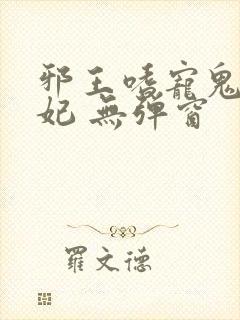 邪王嗜寵鬼
妃 無彈窗
羅文德